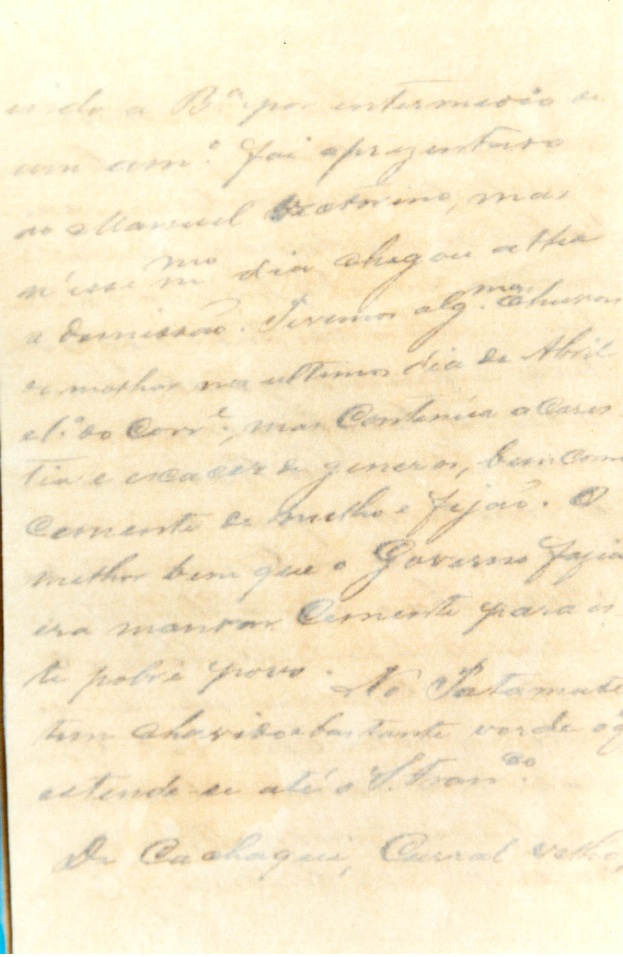 a B.ª por intermedio de
um am.º foi aprezentado
ao Manuel Victorino, mas
n'esse m.mo dia chegou alha
a demissão. Tivemos alg.mas chuvas
de molhar nos ultimos dia de Abril
e 1.º do Corr.e, mas Continúa a Cares
tia e escacez de generos, bem como
Cemente de milho e fejão. O
melhor bem que o Governo fazia
era mandar Cemente para es
te pobre povo. No Patamuté
tem chovido bastante
estende-se até o S. Fran.co
De Cachaqui, Curral velho,